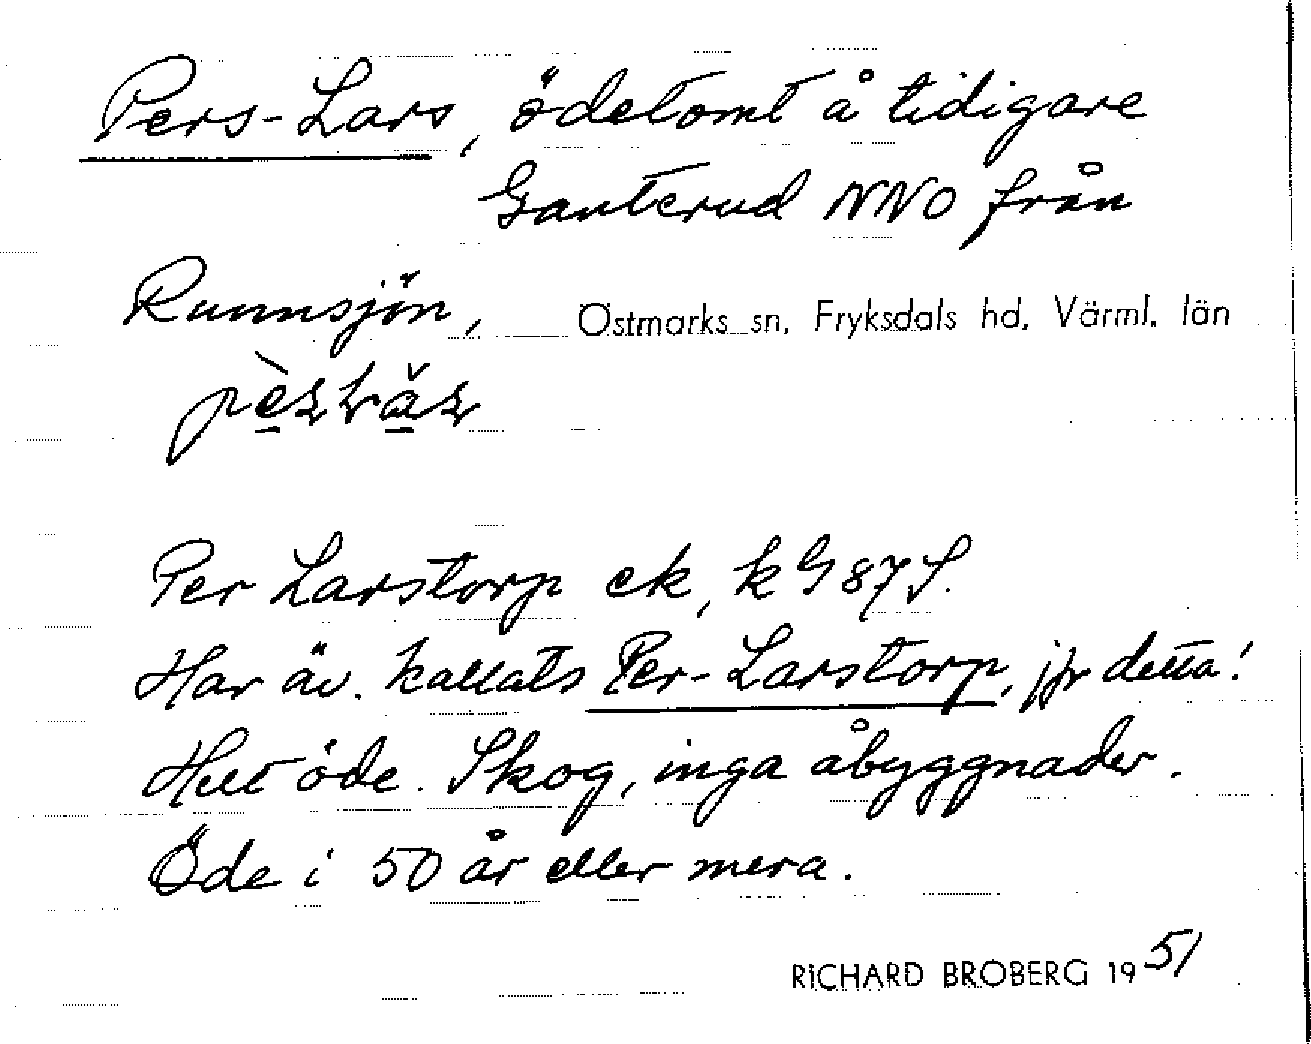 Pers-Lars, ödetomt å tidigare
Ganterud NNO från
Runnsjön, Östmarks sn, Fryksdals hd, Värml. län
Per Larstorp ek, k G 87 S.
Har äv. kallats Per-Larstorp, jfr detta!
Helt öde. Skog, inga åbyggnader.
Öde i 50 år eller mera.
RICHARD BROBERG 1951